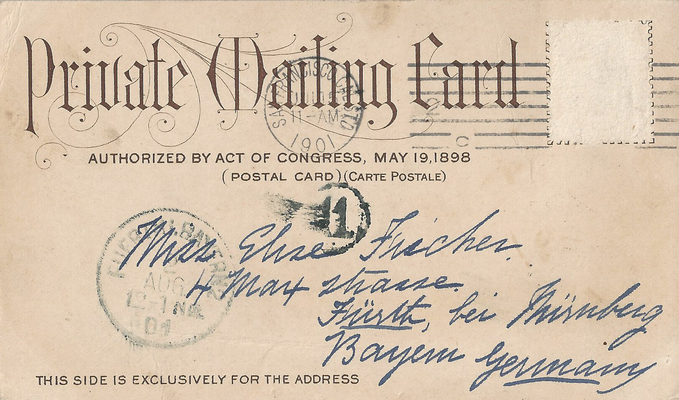 Private Mailing Card
SAN FRANCISCO, CAL. STA
11-AM
1901
C
AUTHORIZED BY ACT OF CONGRESS, MAY 19, 1898
(POSTAL CARD) (CARTE POSTALE)
1
Miss Elise Fischer.
4 Max strasse.
Fürth, bei Nürnberg
Bayern Germany
AUG
01
THIS SIDE IS EXCLUSIVELY FOR THE ADDRESS